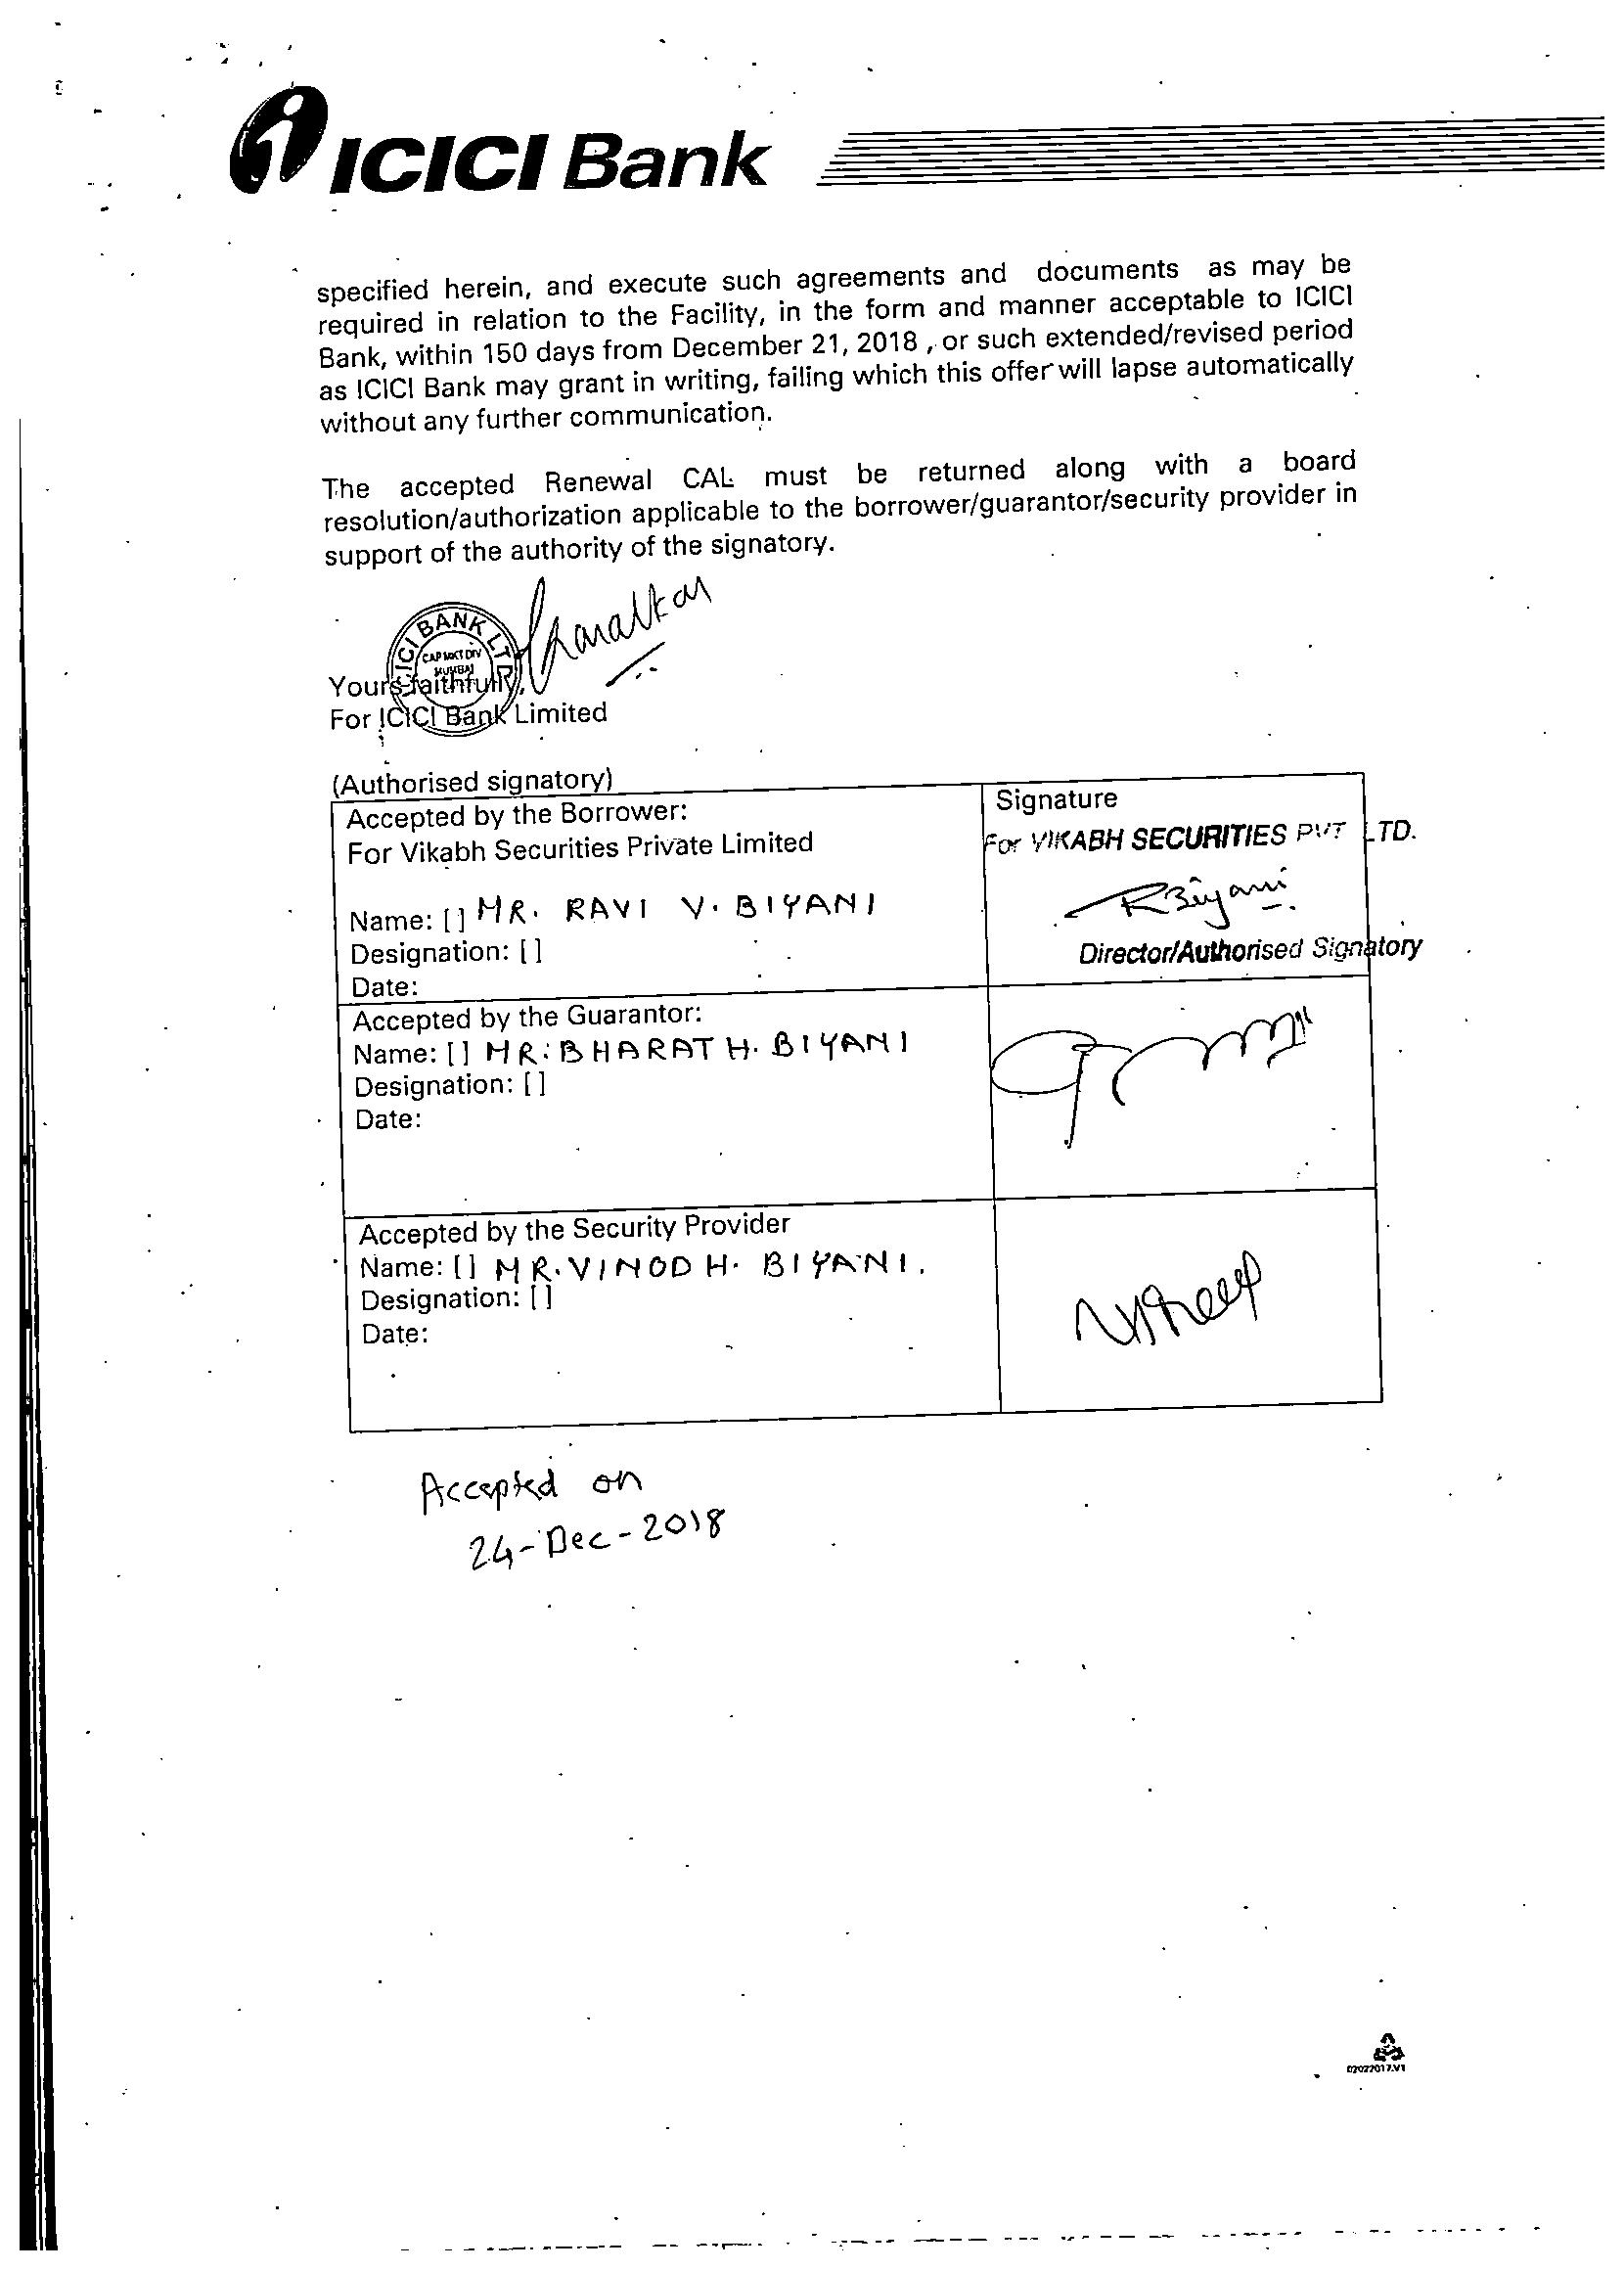 ICICI Bank
specified herein, and execute such agreements and documents as may be
required in relation to the Facility, in the form and manner acceptable to ICICI
Bank, within 150 days from December 21, 2018 , or such extended/revised period
as ICICI Bank may grant in writing, failing which this offer will lapse automatically
without any further communication.
The accepted Renewal CAL must be returned along with a board
resolution/authorization applicable to the borrower/guarantor/security provider in
support of the authority of the signatory.
ICICI BANK LTD
CAP MKT DIV
MUMBAI
Yours faithfully,
For ICICI Bank Limited
(Authorised signatory)
Accepted by the Borrower:
For Vikabh Securities Private Limited
Name: [] MR. RAVI V. BIYANI
Designation: []
Date:
Signature
For VIKABH SECURITIES PVT LTD.
RBiyani
Director/Authorised Signatory
Accepted by the Guarantor:
Name: [] MR. BHARAT H. BIYANI
Designation: []
Date:
Accepted by the Security Provider
Name: [] MR. VINOD H. BIYANI.
Designation: []
Date:
Accepted on
24-Dec-2018
02022017.V1